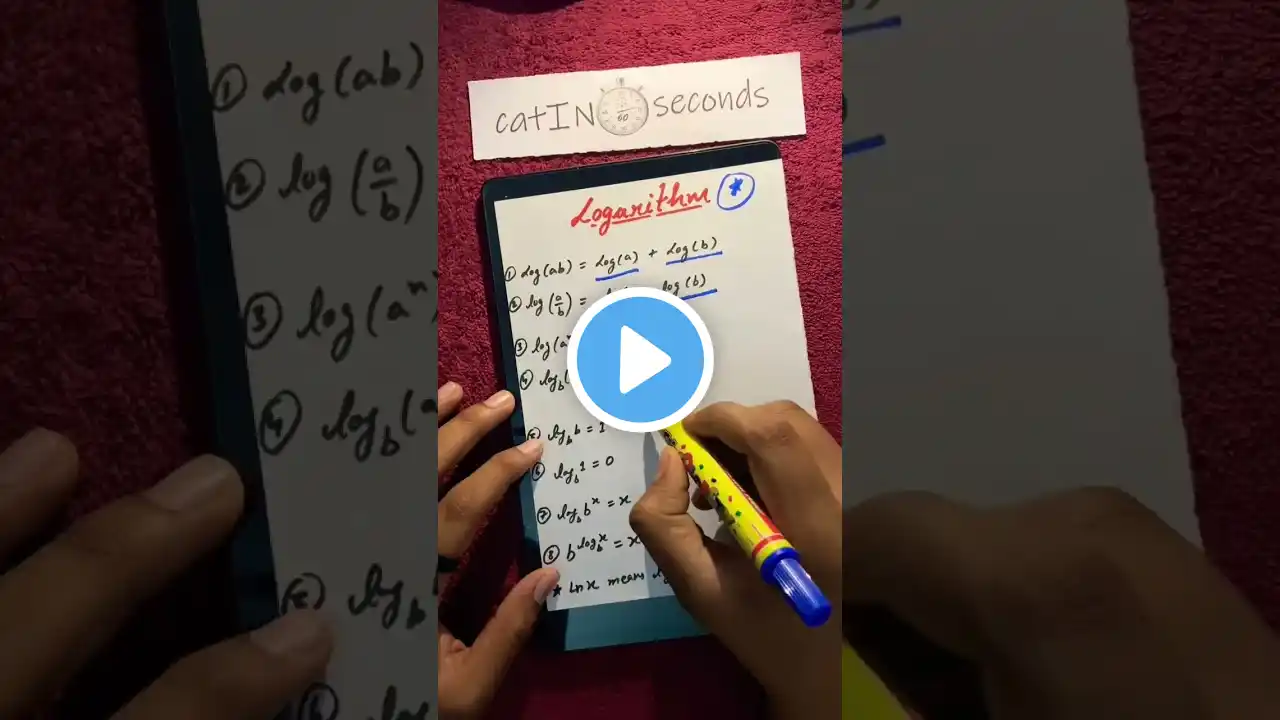 catIN 60 seconds
Logarithm *
① Log(ab) = Log(a) + Log(b)
② log(a/b) = log(b)
③ log(aⁿ
④ log_b(
⑤ log_b b = 1
⑥ log_b 1 = 0
⑦ log_b b^x = x
⑧ b^log_b x = x
* Ln x means
① Log(ab)
② log(a/b)
③ log(aⁿ)
④ log_b(a
⑤ log_b